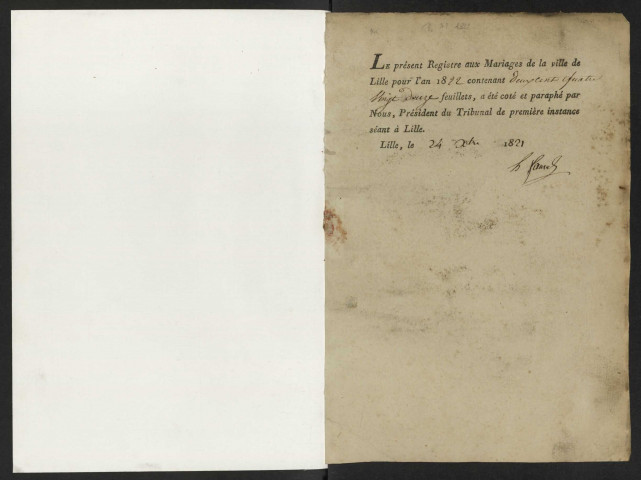 LE présent Registre aux Mariages de la ville de
Lille pour l'an 1822 contenant Deux cent quatre
Vingt Douze feuillets, a été coté et paraphé par
Nous, Président du Tribunal de première instance
séant à Lille.
Lille, le 24 Xbre 1821